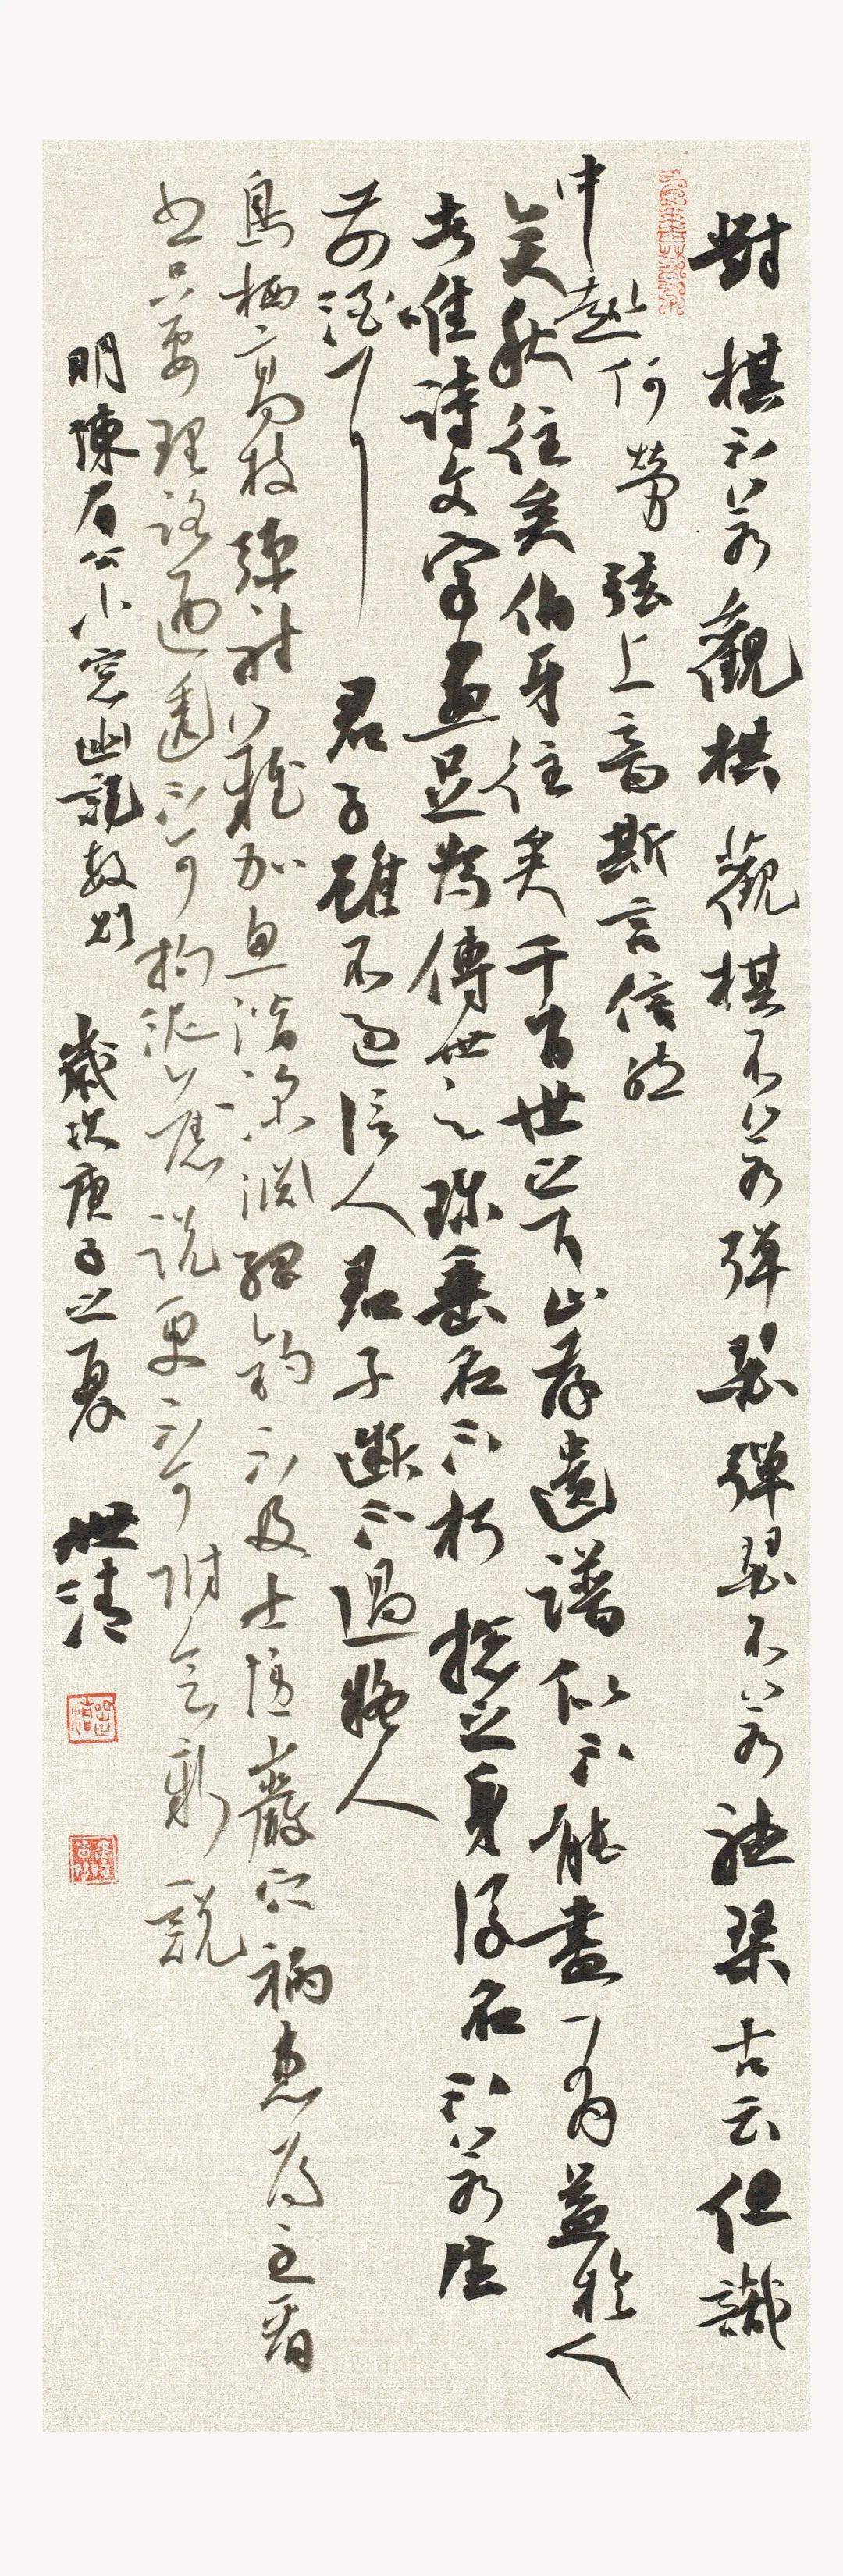 對棋不若觀棋觀棋不若彈瑟彈瑟不若聽琴古云但識琴
中趣何勞弦上音斯言信然
奕秋往矣伯牙往矣千百世之下止存遺譜似不能盡有益於人
者唯詩文字畫足為傳世之珍垂名不朽 總之身後名不若生
前酒耳 君子雖不過信人君子斷不過疑人
鳥栖高枝彈射難加魚潛深淵網釣不及士隱巖穴禍患焉至看
書只要理路通透不可拘泥舊說更不可附會新說
明陳眉公小窗幽記數則 歲次庚子之夏 世清